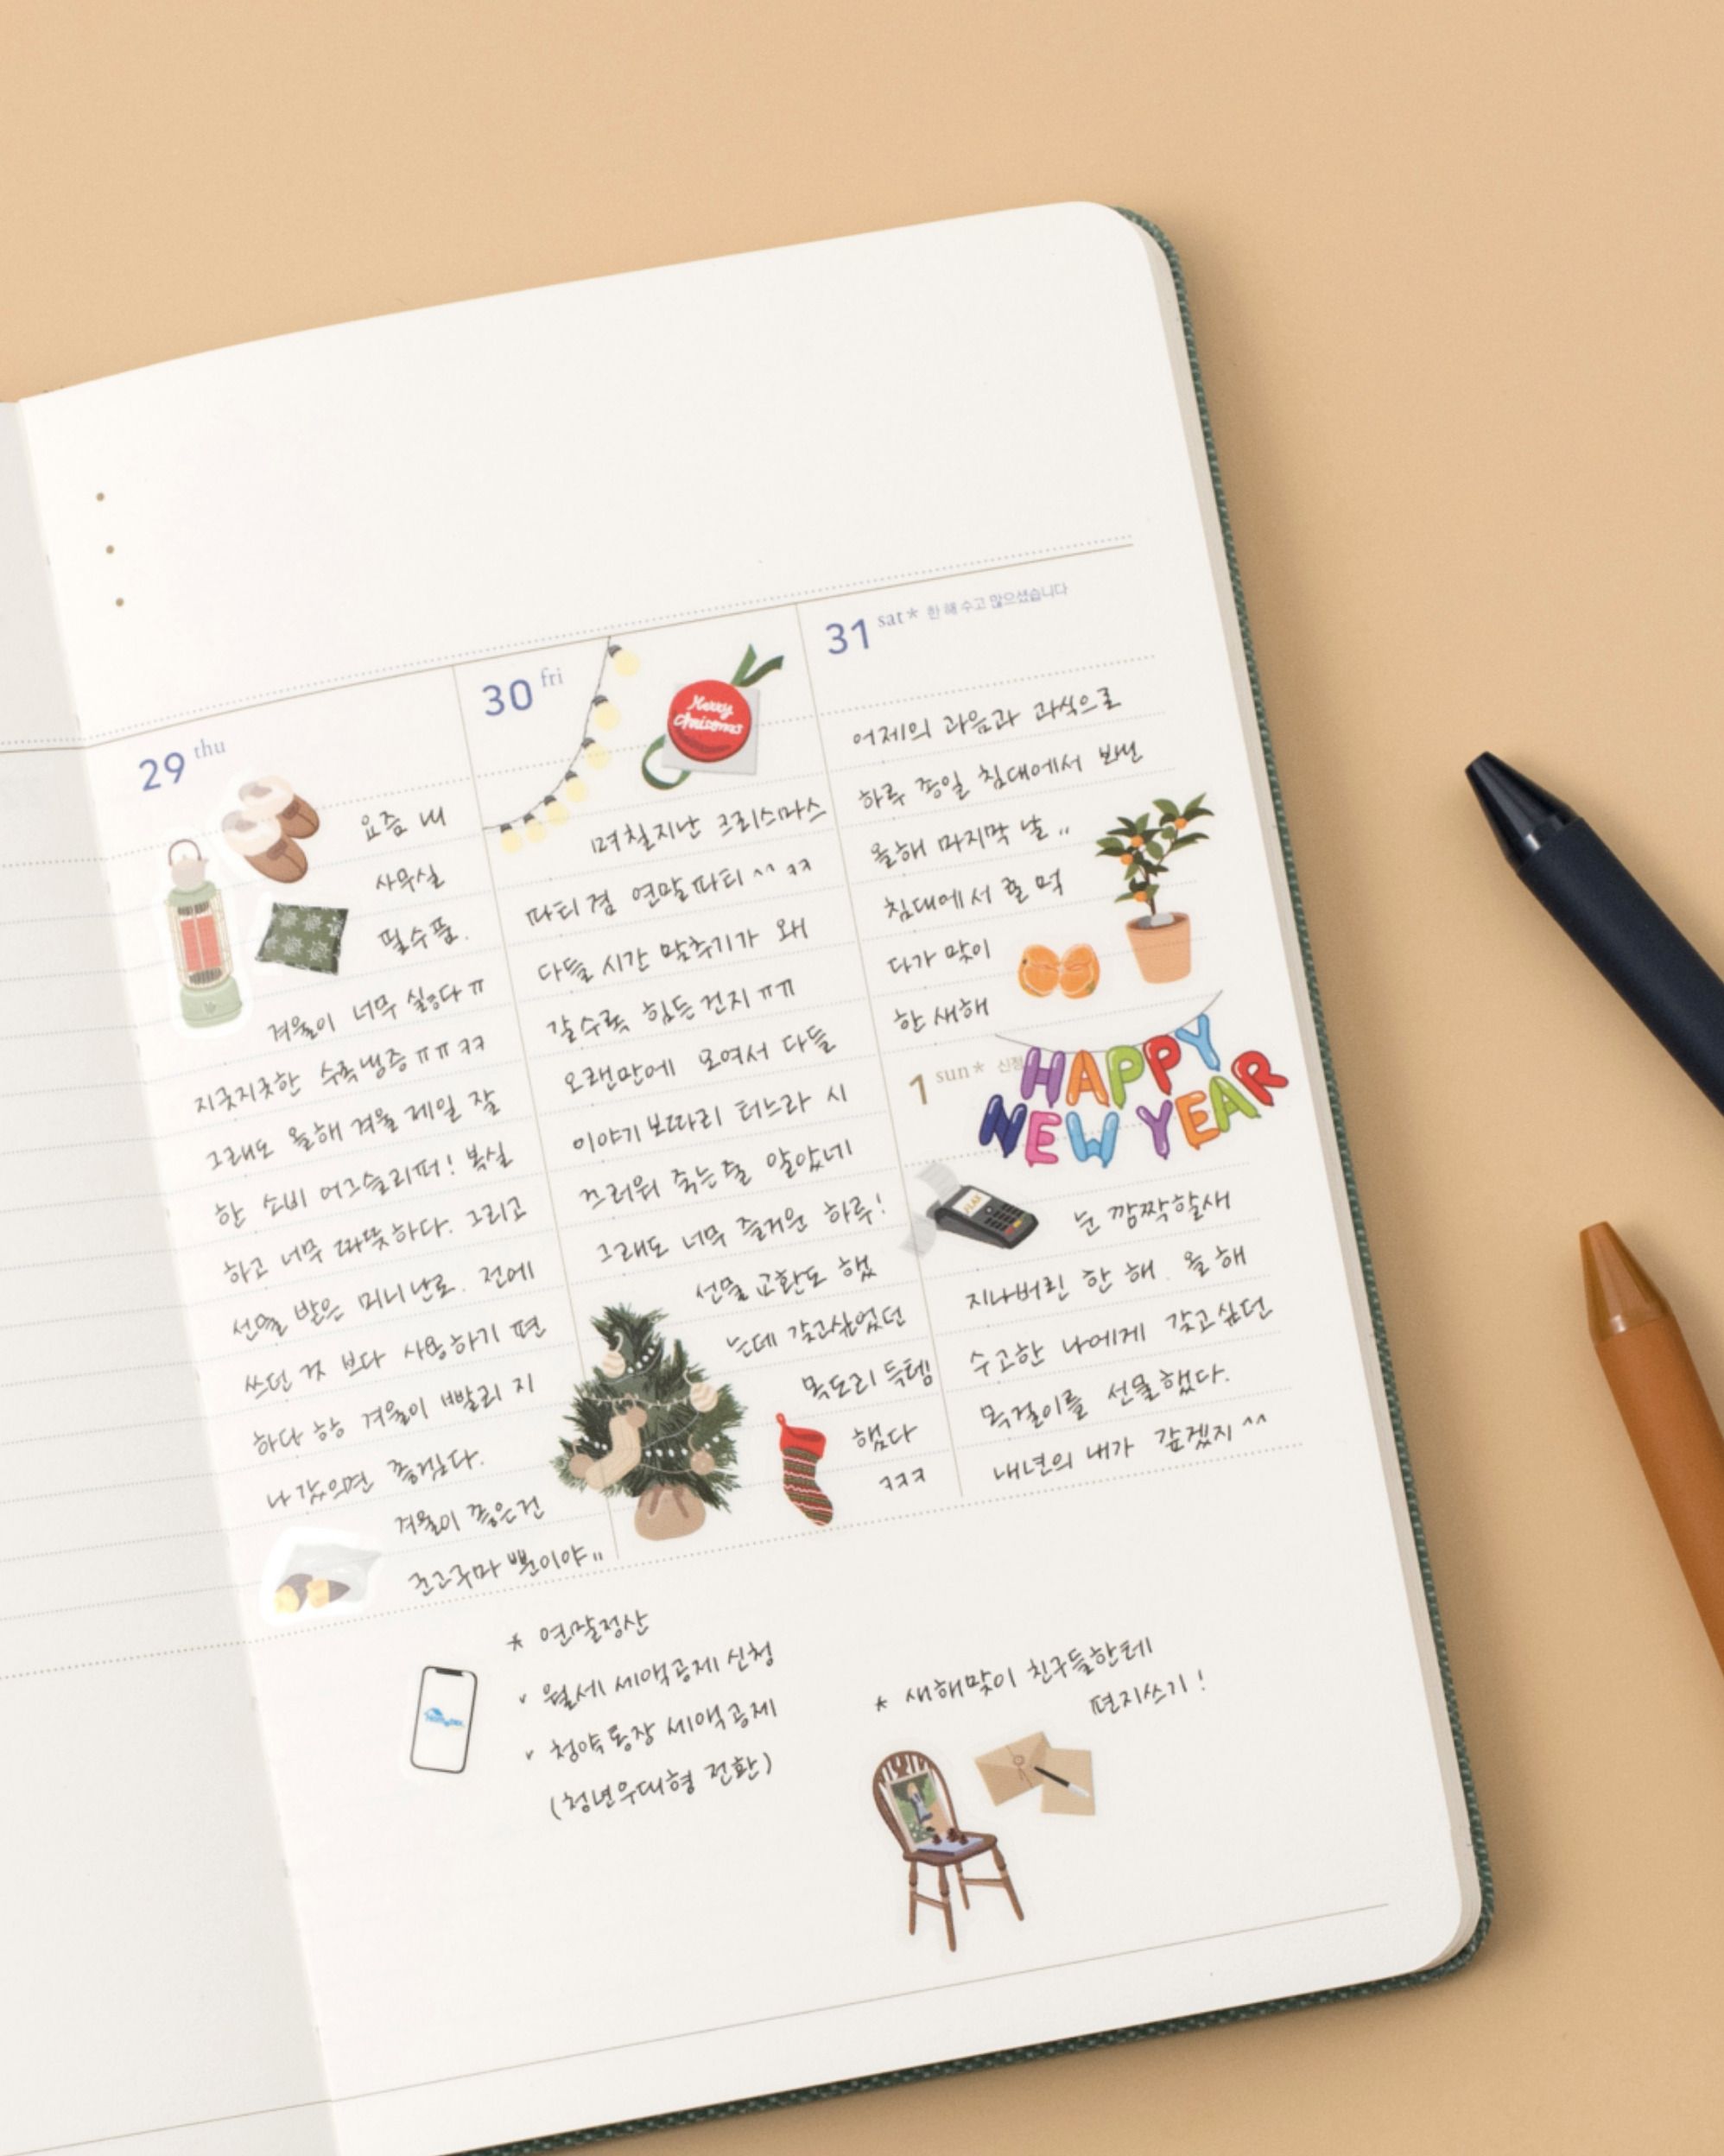 29 thu
요즘 내
사무실
필수품.
겨울이 너무 싫다 ㅠ
지긋지긋한 수족냉증 ㅠㅠ ㅋㅋ
그래도 올해 겨울 제일 잘
한 소비 어그슬리퍼! 복실
하고 너무 따뜻하다. 그리고
선물 받은 미니난로. 전에
쓰던 것 보다 사용하기 편
하다 항상 겨울이 빨리 지
나갔으면 좋겠다.
겨울이 좋은건
군고구마 뿐이야..
30 fri
Merry
Christmas
며칠지난 크리스마스
파티겸 연말파티 ^^ ㅋㅋ
다들 시간 맞추기가 왜
갈수록 힘든건지 ㅠㅠ
오랜만에 모여서 다들
이야기보따리 터느라 시
끄러워 죽는줄 알았네
그래도 너무 즐거운 하루!
선물교환도 했
는데 갖고싶었던
목도리 득템
했다
ㅋㅋㅋ
31 sat* 한 해 수고 많으셨습니다
어제의 과음과 과식으로
하루 종일 침대에서 보낸
올해 마지막 날..
침대에서 귤 먹
다가 맞이
한 새해
1 sun* 신정
HAPPY
NEW YEAR
눈 깜짝할새
지나버린 한 해. 올 해
수고한 나에게 갖고싶던
목걸이를 선물했다.
내년의 내가 갚겠지 ^^
* 연말정산
v 월세 세액공제 신청
v 청약통장 세액공제
(청년우대형 전환)
* 새해맞이 친구들한테
편지쓰기!